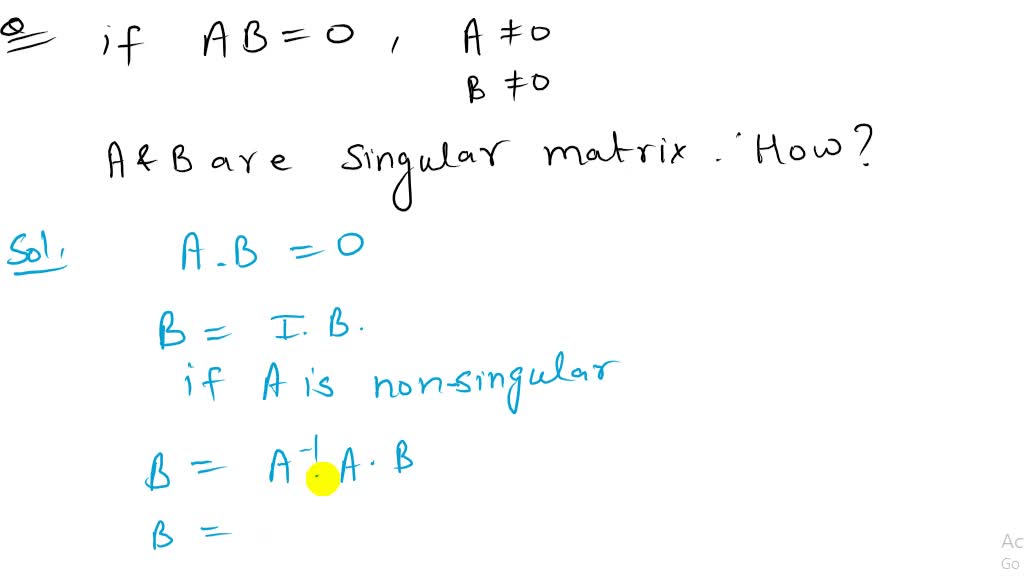 Q if AB = 0 , A ≠ 0
B ≠ 0
A & B are singular matrix . How?
Sol. A . B = 0
B = I . B .
if A is non-singular
B = A⁻¹ . A . B
B =
Ac
Go